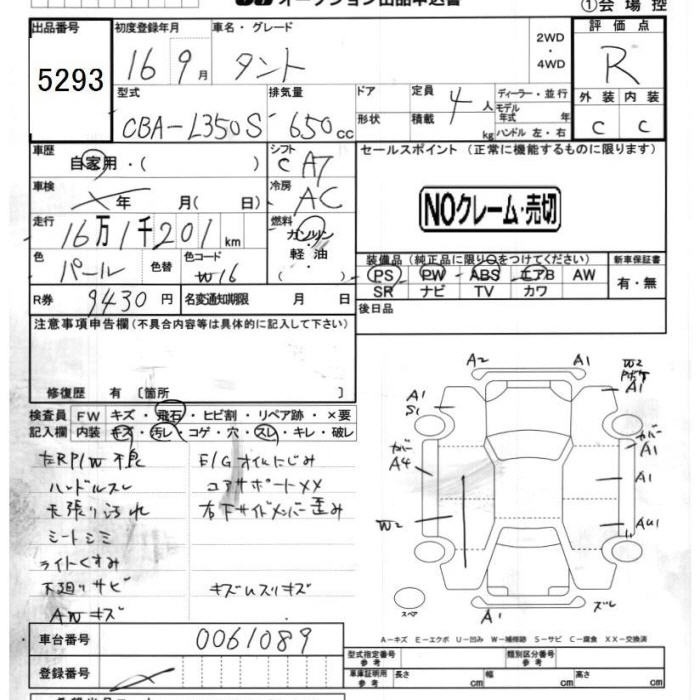 オークション出品申込書
①会場控
出品番号
5293
初度登録年月
16 9月
車名・グレード
タント
2WD
・
4WD
評価点
R
型式
CBA-L350S
排気量
650cc
ドア
形状
定員
4人
積載
kg
ディーラー・並行
モデル
年式 年
ハンドル 左・右
外装 内装
C C
車歴
自家用・( )
シフト
C AT
車検
年 月( 日)
冷房
AC
走行
16万1千201km
燃料
ガソリン
・
軽油
( )
色
パール
色替
色コード
W16
R券 9430円
名変通知期限 月 日
セールスポイント (正常に機能するものに限ります)
NOクレーム・売切
装備品(純正品に限り○をつけてください)
PS PW ABS エアB AW
SR ナビ TV カワ
新車保証書
有・無
後日品
注意事項申告欄(不具合内容等は具体的に記入して下さい)
修復歴 有〔箇所 〕
検査員 FW キズ・飛石・ヒビ割・リペア跡・×要
記入欄 内装 キズ・汚レ・コゲ・穴・スレ・キレ・破レ
左RP/W不良
ハンドルスレ
天張り汚れ
シートシミ
ライトくすみ
下廻りサビ
AWキズ
E/Gオイルにじみ
コアサポートXX
右下サイドメンバー歪み
キズムスリキズ
A2
A1
W2
A1
A1
S1
カバー
A4
カバー
A1
A1
W2
AU1
A1
ズレ
スペア
A-キズ E-エクボ U-凹み W-補修跡 S-サビ C-腐食 XX-交換済
車台番号 0061089
登録番号
型式指定番号
参考
類別区分番号
参考
車庫証明用
参考
長さ cm
幅 cm
高さ cm